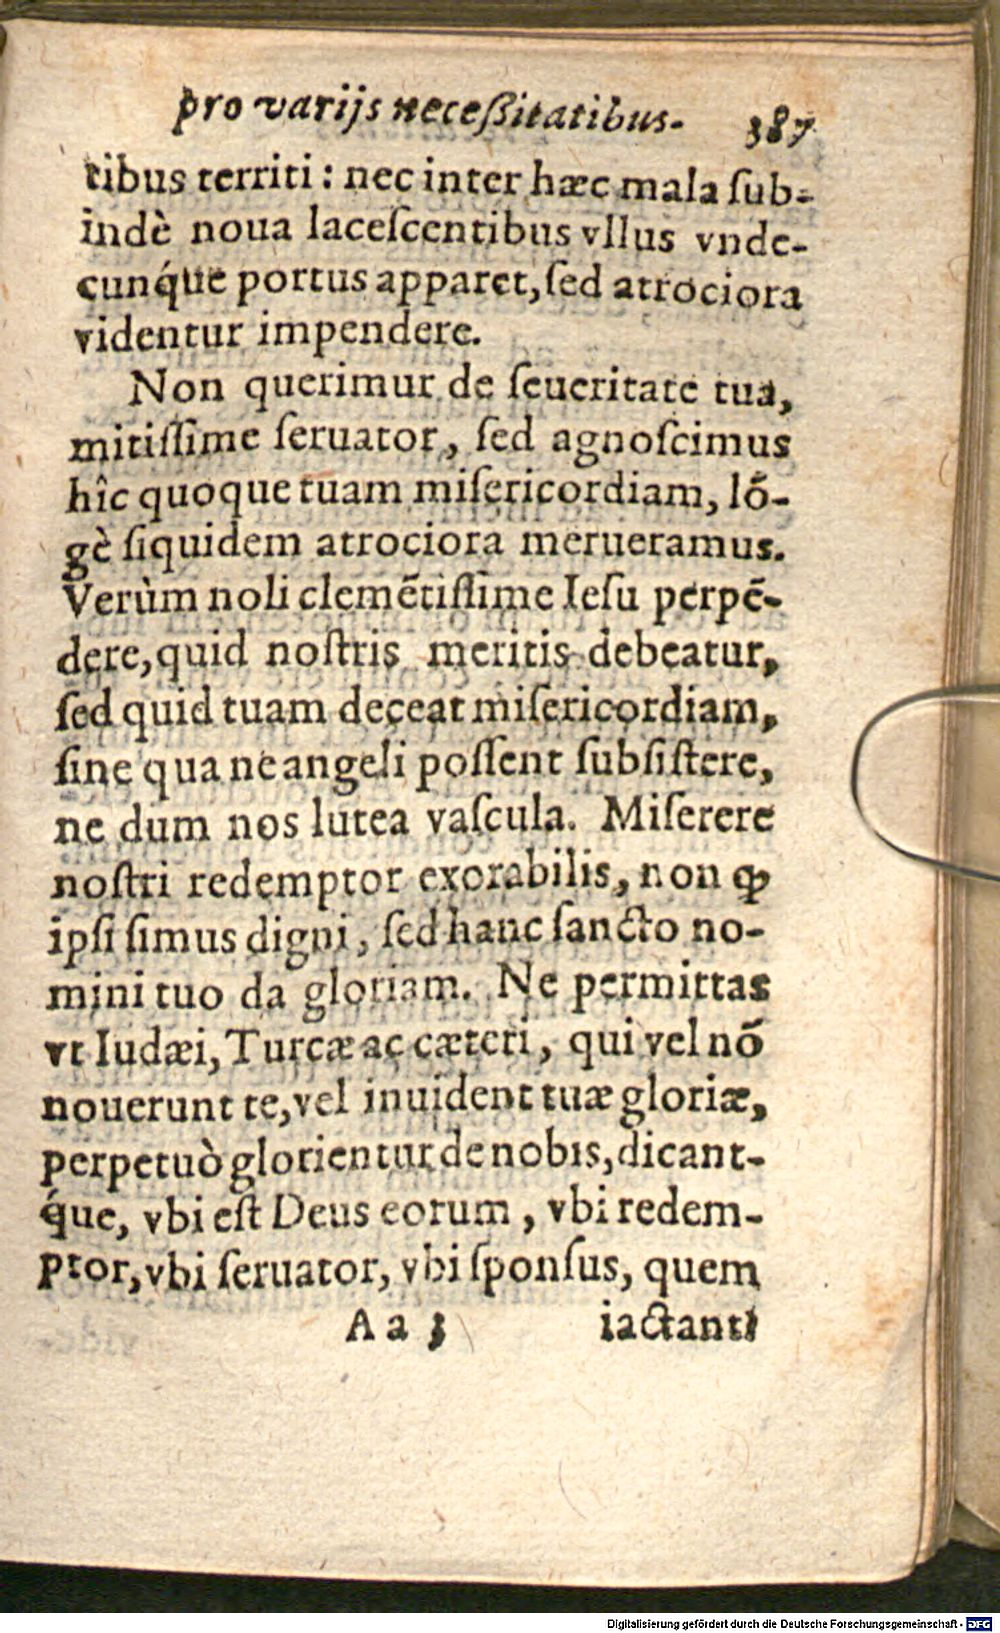 pro varijs neceßitatibus. 387
tibus territi : nec inter hæc mala ſub-
indè noua laceſcentibus vllus vnde-
cunq́ue portus apparet, ſed atrociora
videntur impendere.
Non querimur de ſeueritate tua,
mitiſſime ſeruator, ſed agnoſcimus
hîc quoque tuam miſericordiam, lō-
gè ſiquidem atrociora merueramus.
Verùm noli clemētiſſime Ieſu perpē-
dere, quid noſtris meritis debeatur,
ſed quid tuam deceat miſericordiam,
ſine qua ne angeli poſſent ſubſiſtere,
ne dum nos lutea vaſcula. Miſerere
noſtri redemptor exorabilis, non ꝙ
ipſi ſimus digni, ſed hanc ſancto no-
mini tuo da gloriam. Ne permittas
vt Iudæi, Turcæ ac cæteri, qui vel nō
nouerunt te, vel inuident tuæ gloriæ,
perpetuò glorientur de nobis, dicant-
q́ue, vbi eſt Deus eorum, vbi redem-
ptor, vbi ſeruator, vbi ſponſus, quem
A a 3 iactant?
Digitalisierung gefördert durch die Deutsche Forschungsgemeinschaft - DFG